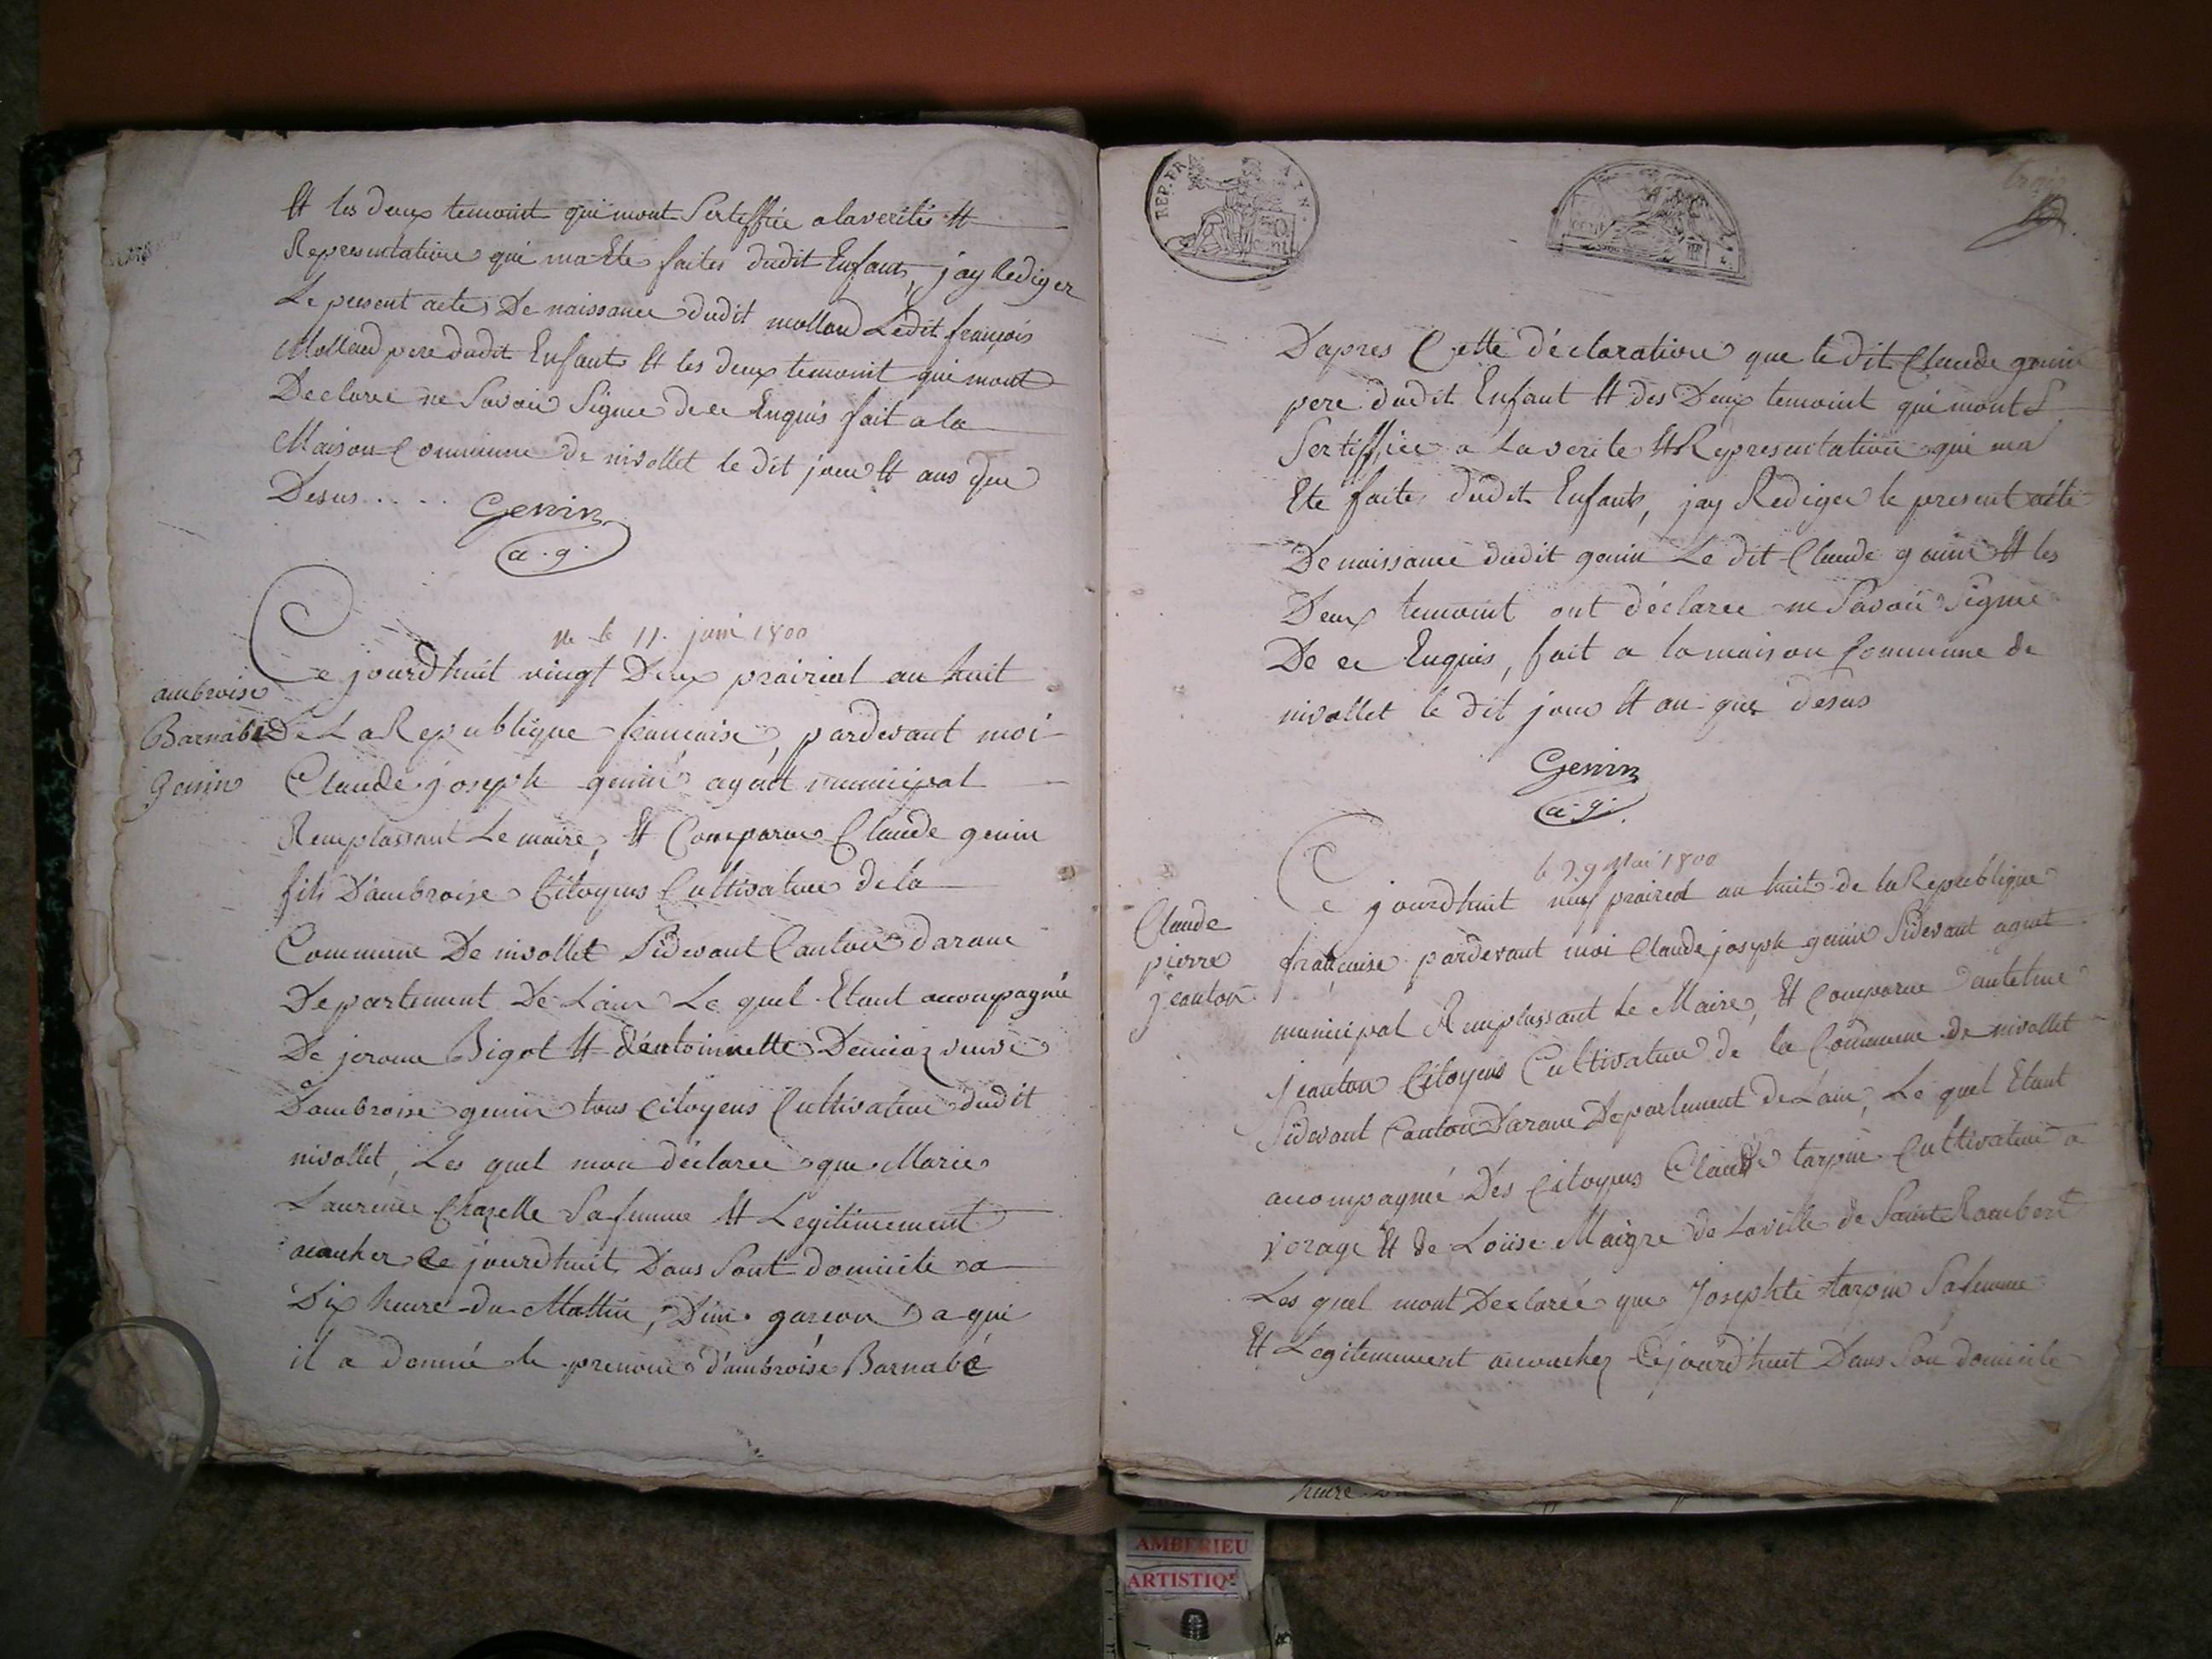 Et les deux temoint qui mont Sertiffiée a la verités Et
Representatione qui ma Ete faites dudit Enfant, jay Rediger
Le present acte De naissance dudit mollard Ledit françois
Mollard pere dudit Enfant Et les deux temoint qui mont
Declaree ne Savoir Signer de ce Enquis fait a la
Maison Commune de nivollet le dit jour Et ans que
Desus....
Genin
a.g.
ne le 11. juin 1800
Ce jourdhuit vingt Deux prairial an huit
ambroise
Barnabé
Genin
De La Republique francaise, pardevant moi
Claude joseph genin agent municipal
Remplassant Le maire, Et Comparue Claude genin
fils D'ambroise Citoyens Cultivateur de la
Commune De nivollet Sidevant Canton darane
Departement De Lain Le quel Etant accompagnié
De jerome Bigot Et d'entoinnette Demiaz veuve
Dambroise genin tous Citoyens Cultivateur dudit
nivollet, Les quel mon déclaree que Marie
Laurence Chapelle Safemme Et Legitimement
acoucher Ce jourdhuit Dans Sont domicile a
Dix heure du Mattin, D'un garcon a qui
il a donnié le prenom d'ambroise Barnabé
REP. FRA
50
cent
D'apres Cette déclaratione que le dit Claude genin
pere dudit Enfant Et des Deux temoint qui mont
Sertiffiée a La verite Et Representatione qui ma
Ete faite dudit Enfant, jay Rediger le present acte
De naissance dudit genin Le dit Claude genin Et les
Deux temoint ont déclaree ne Savoir Signer
De ce Enquis, fait a la maison Commune de
nivollet le dit jour Et an que desus
Genin
a.g.
le 29 Mai 1800
Ce jourdhuit neuf prairial an huit de la Republique
Claude
pierre
jeanton
française pardevant moi Claude joseph genin Sidevant agent
municipal Remplassant le Maire, Et Comparue
jeanton Citoyens Cultivateur de la Commune de nivollet
Sidevant Canton Darane Departement De Lain, Le quel Etant
accompagnié Dés Citoyens Claude tarpin Cultivateur a
Et de Loüise Maigre de Laville de Saint Rambert
Les quel mont Declarée que Josephte tarpin Safemme
Et Legitimement acoucher Cejourd'huit Dans Son domicile
heure
AMBERIEU
ARTISTIQ